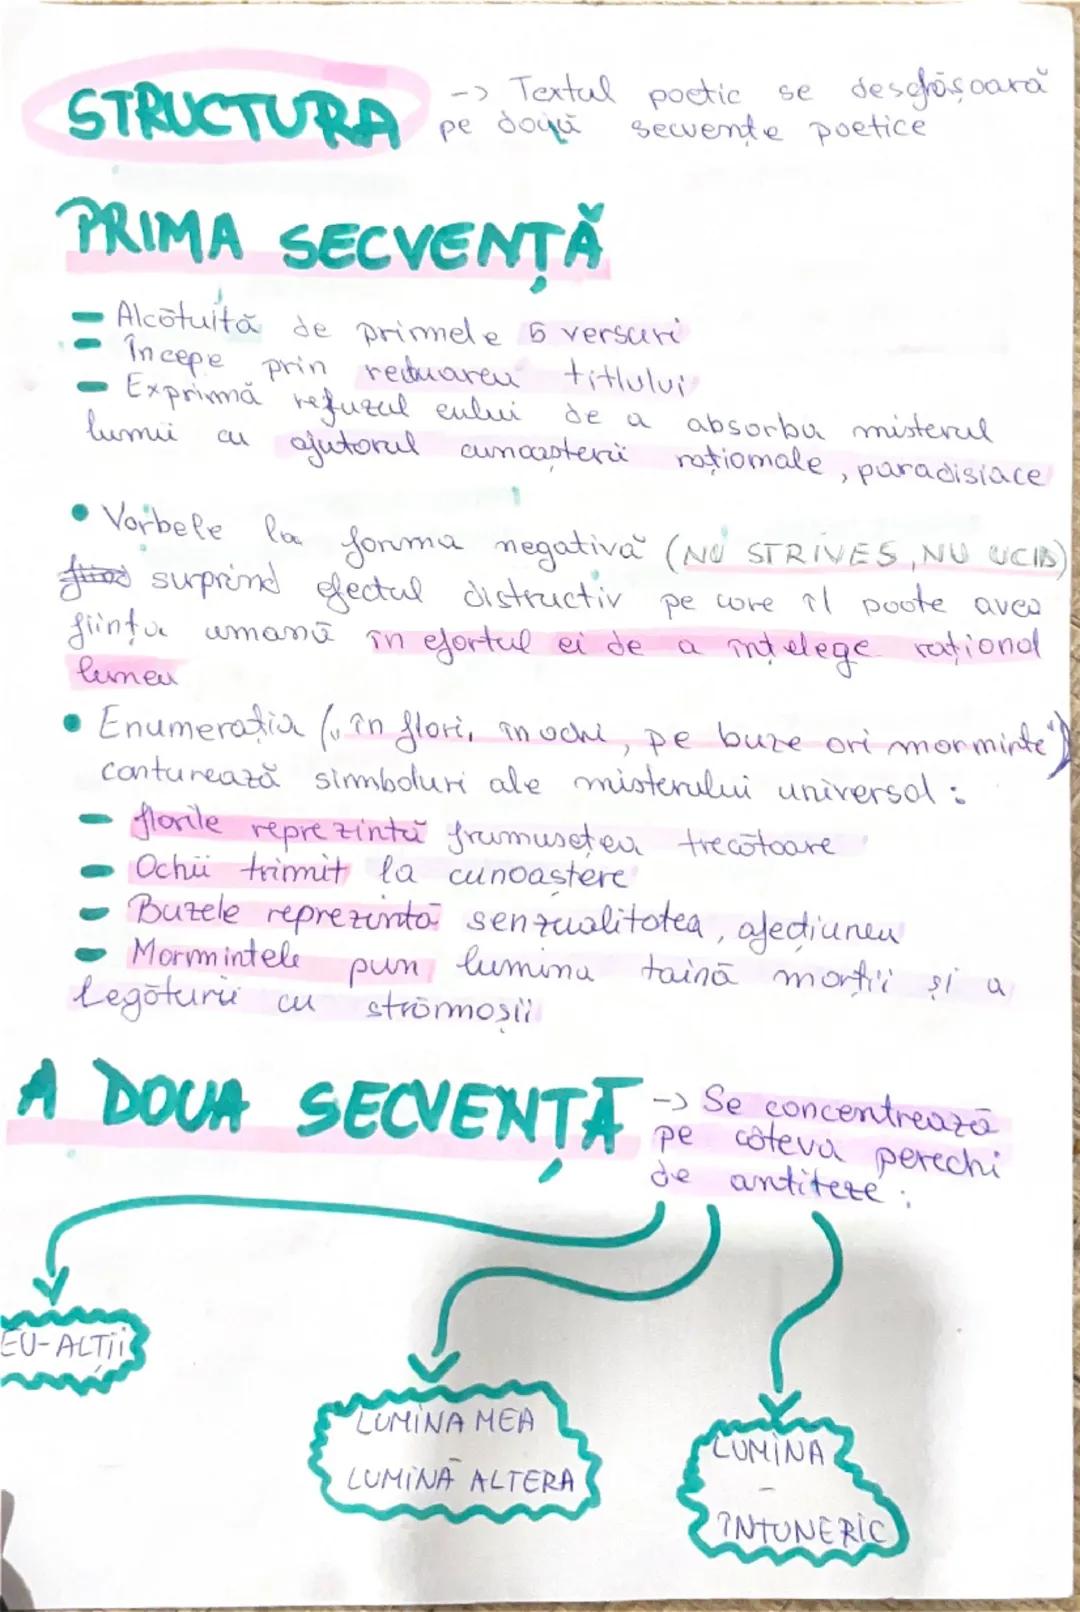 STRUCTURA -> Textul poetic se desfășoară
pe două secvențe poetice
PRIMA SECVENȚĂ
- Alcătuită de primele 5 versuri
- Începe prin reluarea titlului
- Exprimă refuzul eului de a absorba misterul
lumii cu ajutorul cunoașterii raționale, paradisiace
• Vorbele la forma negativă (NU STRIVES, NU UCID)
surprind efectul distructiv pe care îl poate avea
ființa umană în efortul ei de a înțelege rațional
lumea
• Enumerația („în flori, în ochi, pe buze ori morminte")
conturează simboluri ale misterului universal:
- florile reprezintă frumusețea trecătoare
- Ochii trimit la cunoaștere
- Buzele reprezintă senzualitatea, afecțiunea
- Mormintele pun lumina taină morții și a
legăturii cu strămoșii
A DOUA SECVENȚĂ -> Se concentrează
pe câteva perechi
de antiteze:
EU-ALȚII
LUMINA MEA
LUMINĂ ALTERA
LUMINA
-
ÎNTUNERIC